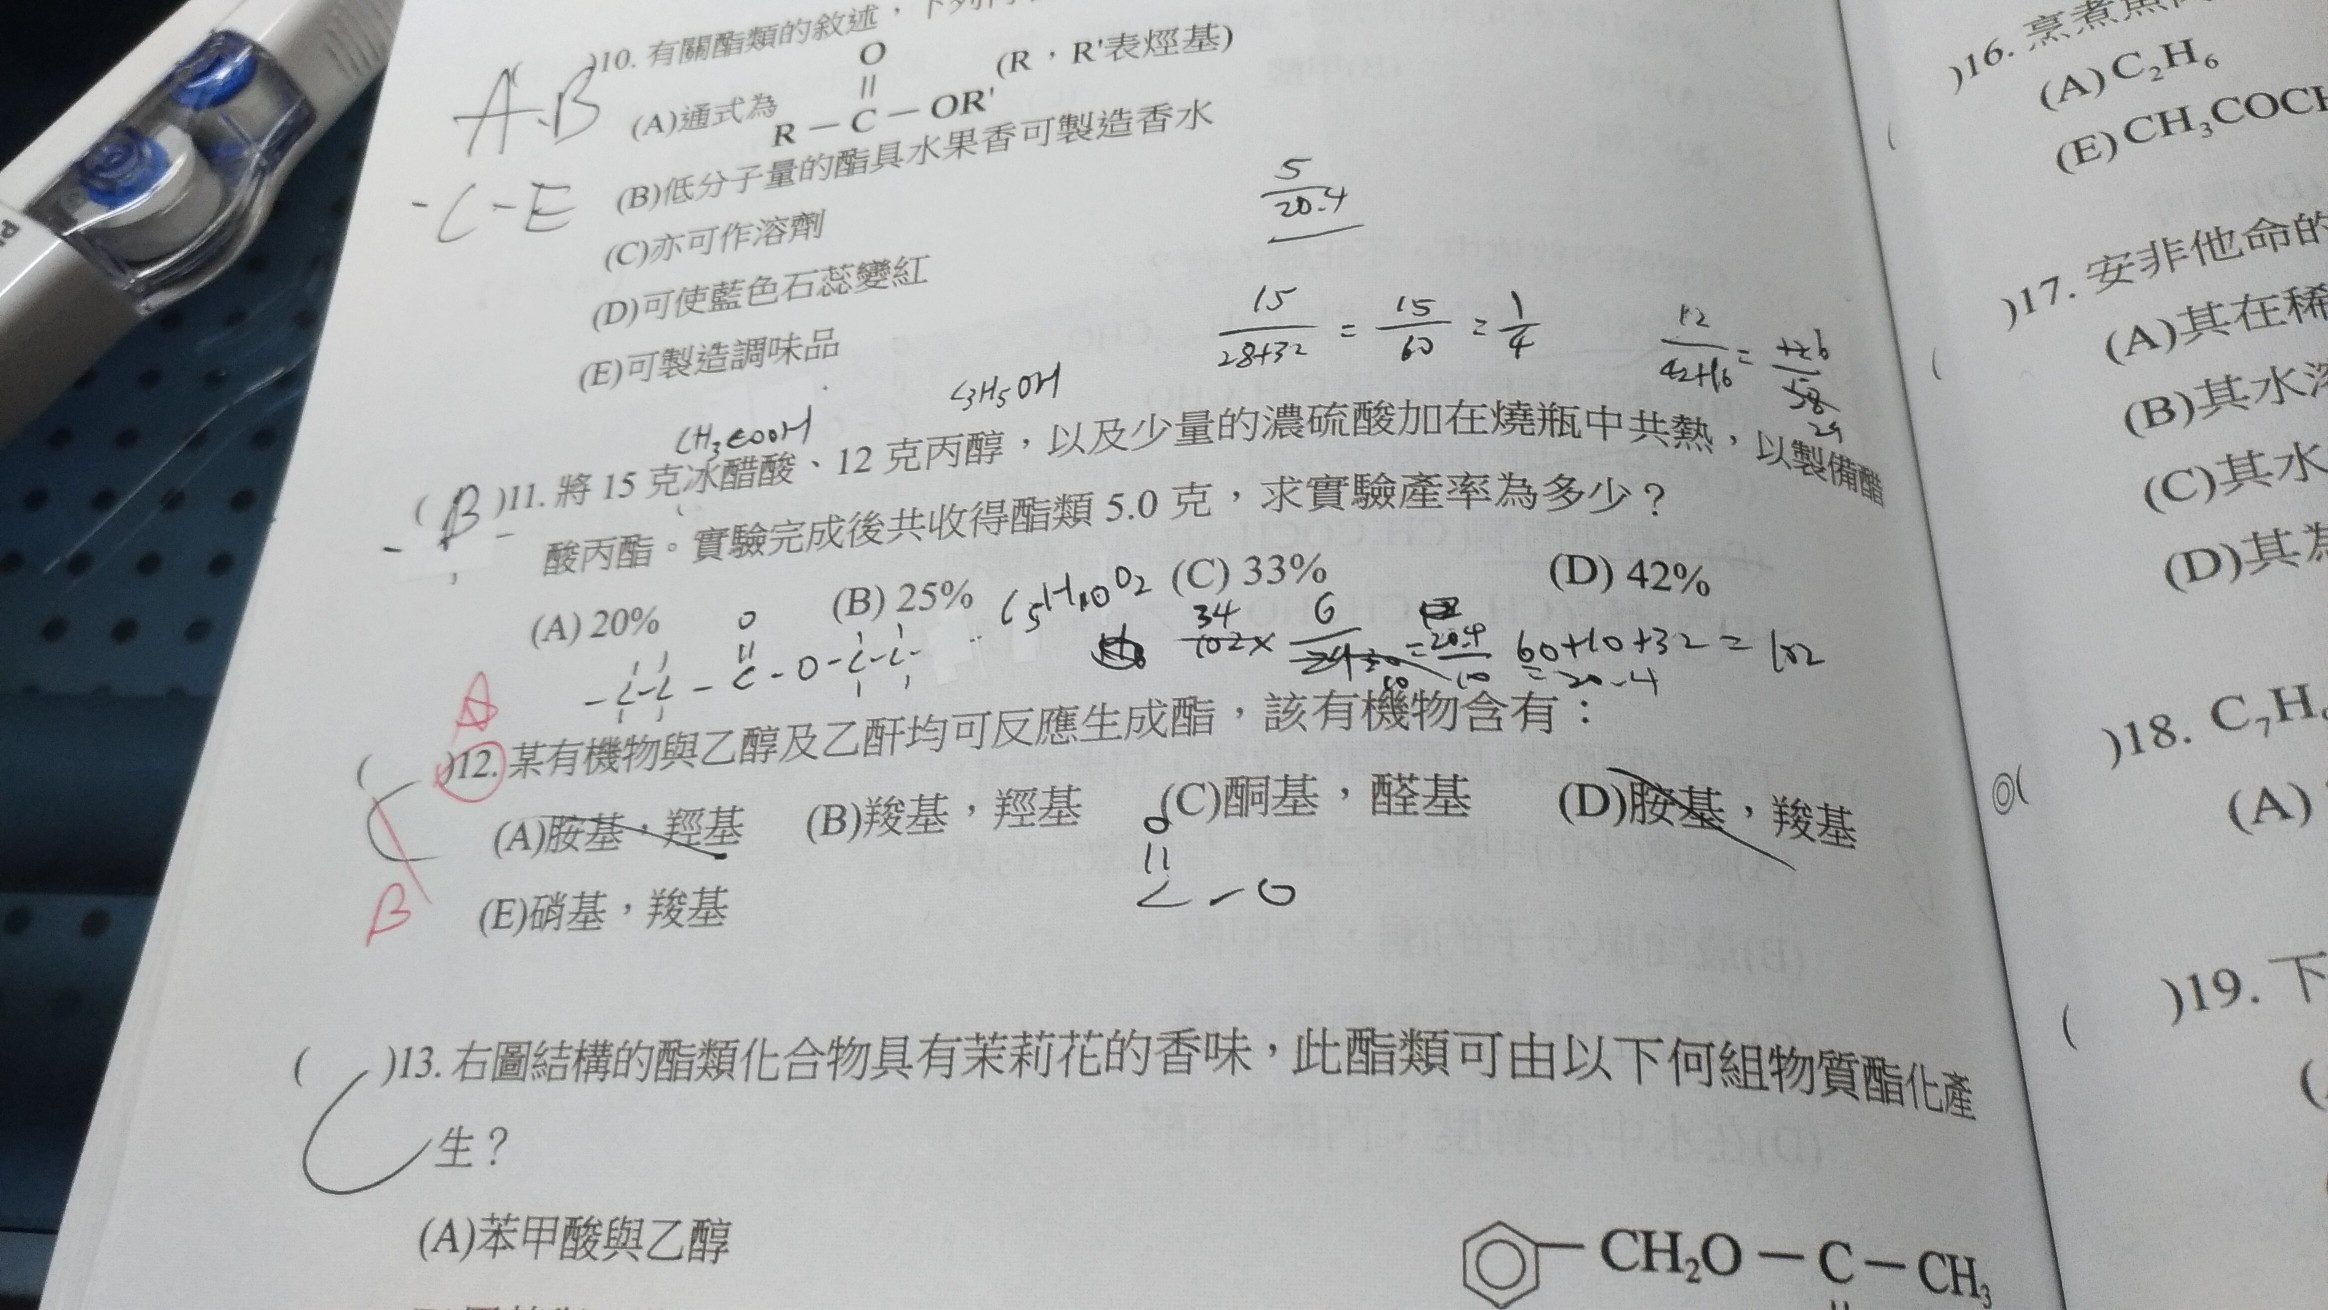 )10. 有關酯類的敘述,下列
A.B
(A)通式為 R－C－OR' (R,R'表烴基)
O
||
(B)低分子量的酯具水果香可製造香水
-C-E
(C)亦可作溶劑
5/20.4
(D)可使藍色石蕊變紅
(E)可製造調味品
15/28+32 = 15/60 = 1/4
12/42+16 =
58
29
CH3COOH
C3H5OH
( B )11. 將 15 克冰醋酸、12 克丙醇,以及少量的濃硫酸加在燒瓶中共熱,以製備醋
酸丙酯。實驗完成後共收得酯類 5.0 克,求實驗產率為多少?
(A) 20% (B) 25% (C) 33% (D) 42%
C5H10O2
34
102×
6
60+10+32=102
=20.4
O
||
-C-C-C-O-C-C-
A
( C )12. 某有機物與乙醇及乙酐均可反應生成酯,該有機物含有:
(A)胺基,羥基 (B)羧基,羥基 (C)酮基,醛基 (D)胺基,羧基
O
||
C-O
B
(E)硝基,羧基
( C )13. 右圖結構的酯類化合物具有茉莉花的香味,此酯類可由以下何組物質酯化產
生?
(A)苯甲酸與乙醇
－CH2O－C－CH3
)16. 烹煮魚
(A)C2H6
(E)CH3COCH
( )17. 安非他命的
(A)其在稀
(B)其水溶
(C)其水
(D)其為
◎( )18. C7H
(A)
( )19. 下